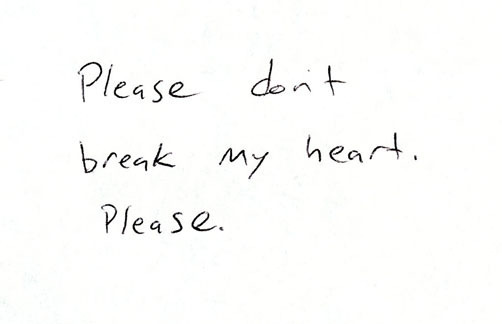 Please don't
break my heart.
Please.